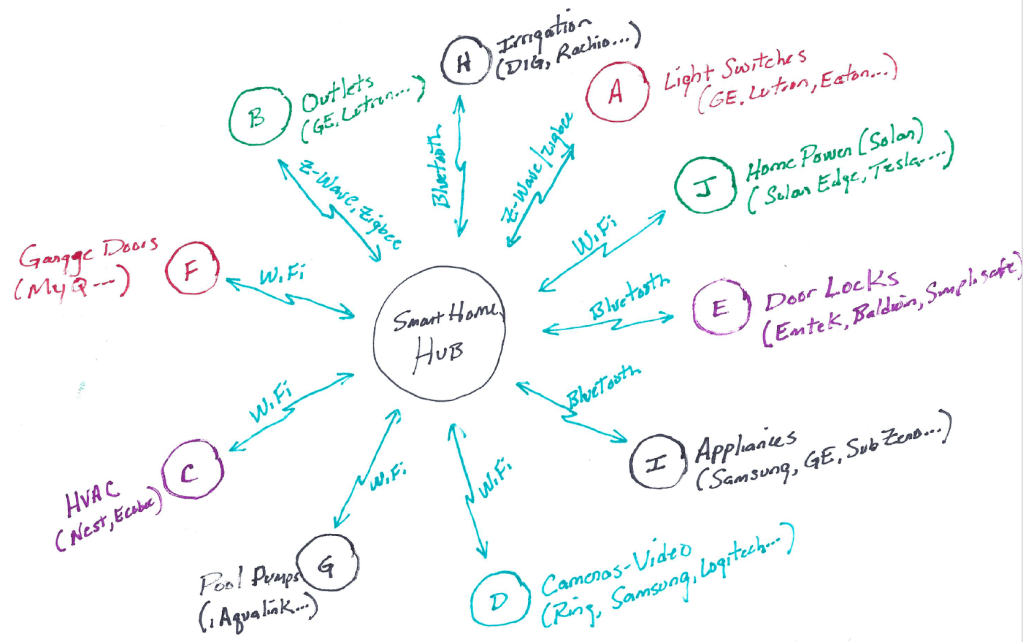 H
Irrigation
(DIG, Rachio...)
Bluetooth
A
Light Switches
(GE, Lutron, Eaton...)
Z-Wave/Zigbee
B
Outlets
(GE, Lutron...)
Z-Wave, Zigbee
J
Home Power (Solar)
(Solar Edge, Tesla,...)
WiFi
F
Garage Doors
(MyQ ...)
WiFi
Smart Home
HUB
E
Door Locks
(Emtek, Baldwin, Simplisafe)
Bluetooth
I
Appliances
(Samsung, GE, SubZero...)
Bluetooth
C
HVAC
(Nest, Ecobee)
WiFi
G
Pool Pumps
(, Aqualink...)
WiFi
D
Cameras-Video
(Ring, Samsung, Logitech...)
WiFi